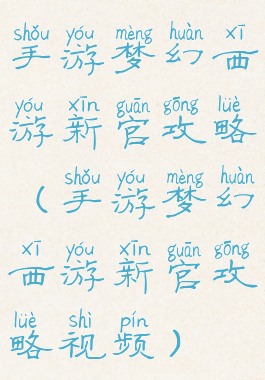 shǒu yóu mèng huàn xī
手游梦幻西
yóu xīn guān gōng lüè
游新官攻略
shǒu yóu mèng huàn
（手游梦幻
xī yóu xīn guān gōng
西游新官攻
lüè shì pín
略视频）